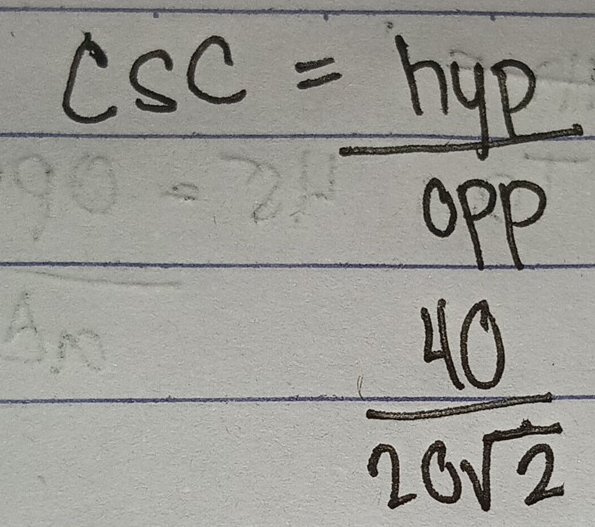 csc = hyp
opp
40
20√2